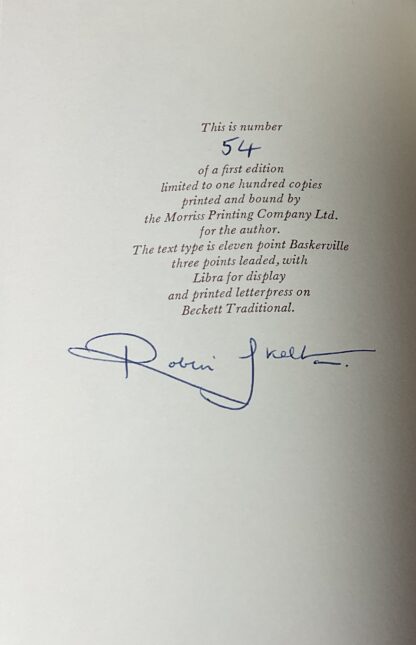 This is number
54
of a first edition
limited to one hundred copies
printed and bound by
the Morriss Printing Company Ltd.
for the author.
The text type is eleven point Baskerville
three points leaded, with
Libra for display
and printed letterpress on
Beckett Traditional.
Robin Skelton.